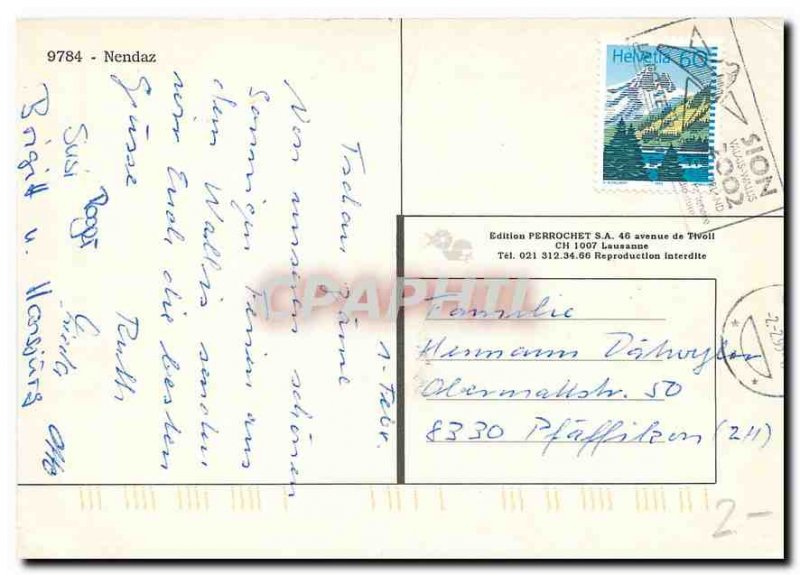 9784 - Nendaz
1. Febr.
Tschau zäme
Von unseren schönen
sonnigen Ferien aus
dem Wallis senden
wir Euch die besten
Grüsse
Ruth
Susi Roger
Brigitt u. Hansjürg
Otto
Helvetia 60
SION
VALAIS WALLIS
SWITZERLAND
2002
Edition PERROCHET S.A. 46 avenue de Tivoli
CH 1007 Lausanne
Tél. 021 312.34.66 Reproduction interdite
CPAPHIL
Familie
Hermann Dätwyler
Obermattstr. 50
8330 Pfäffikon (ZH)
2-